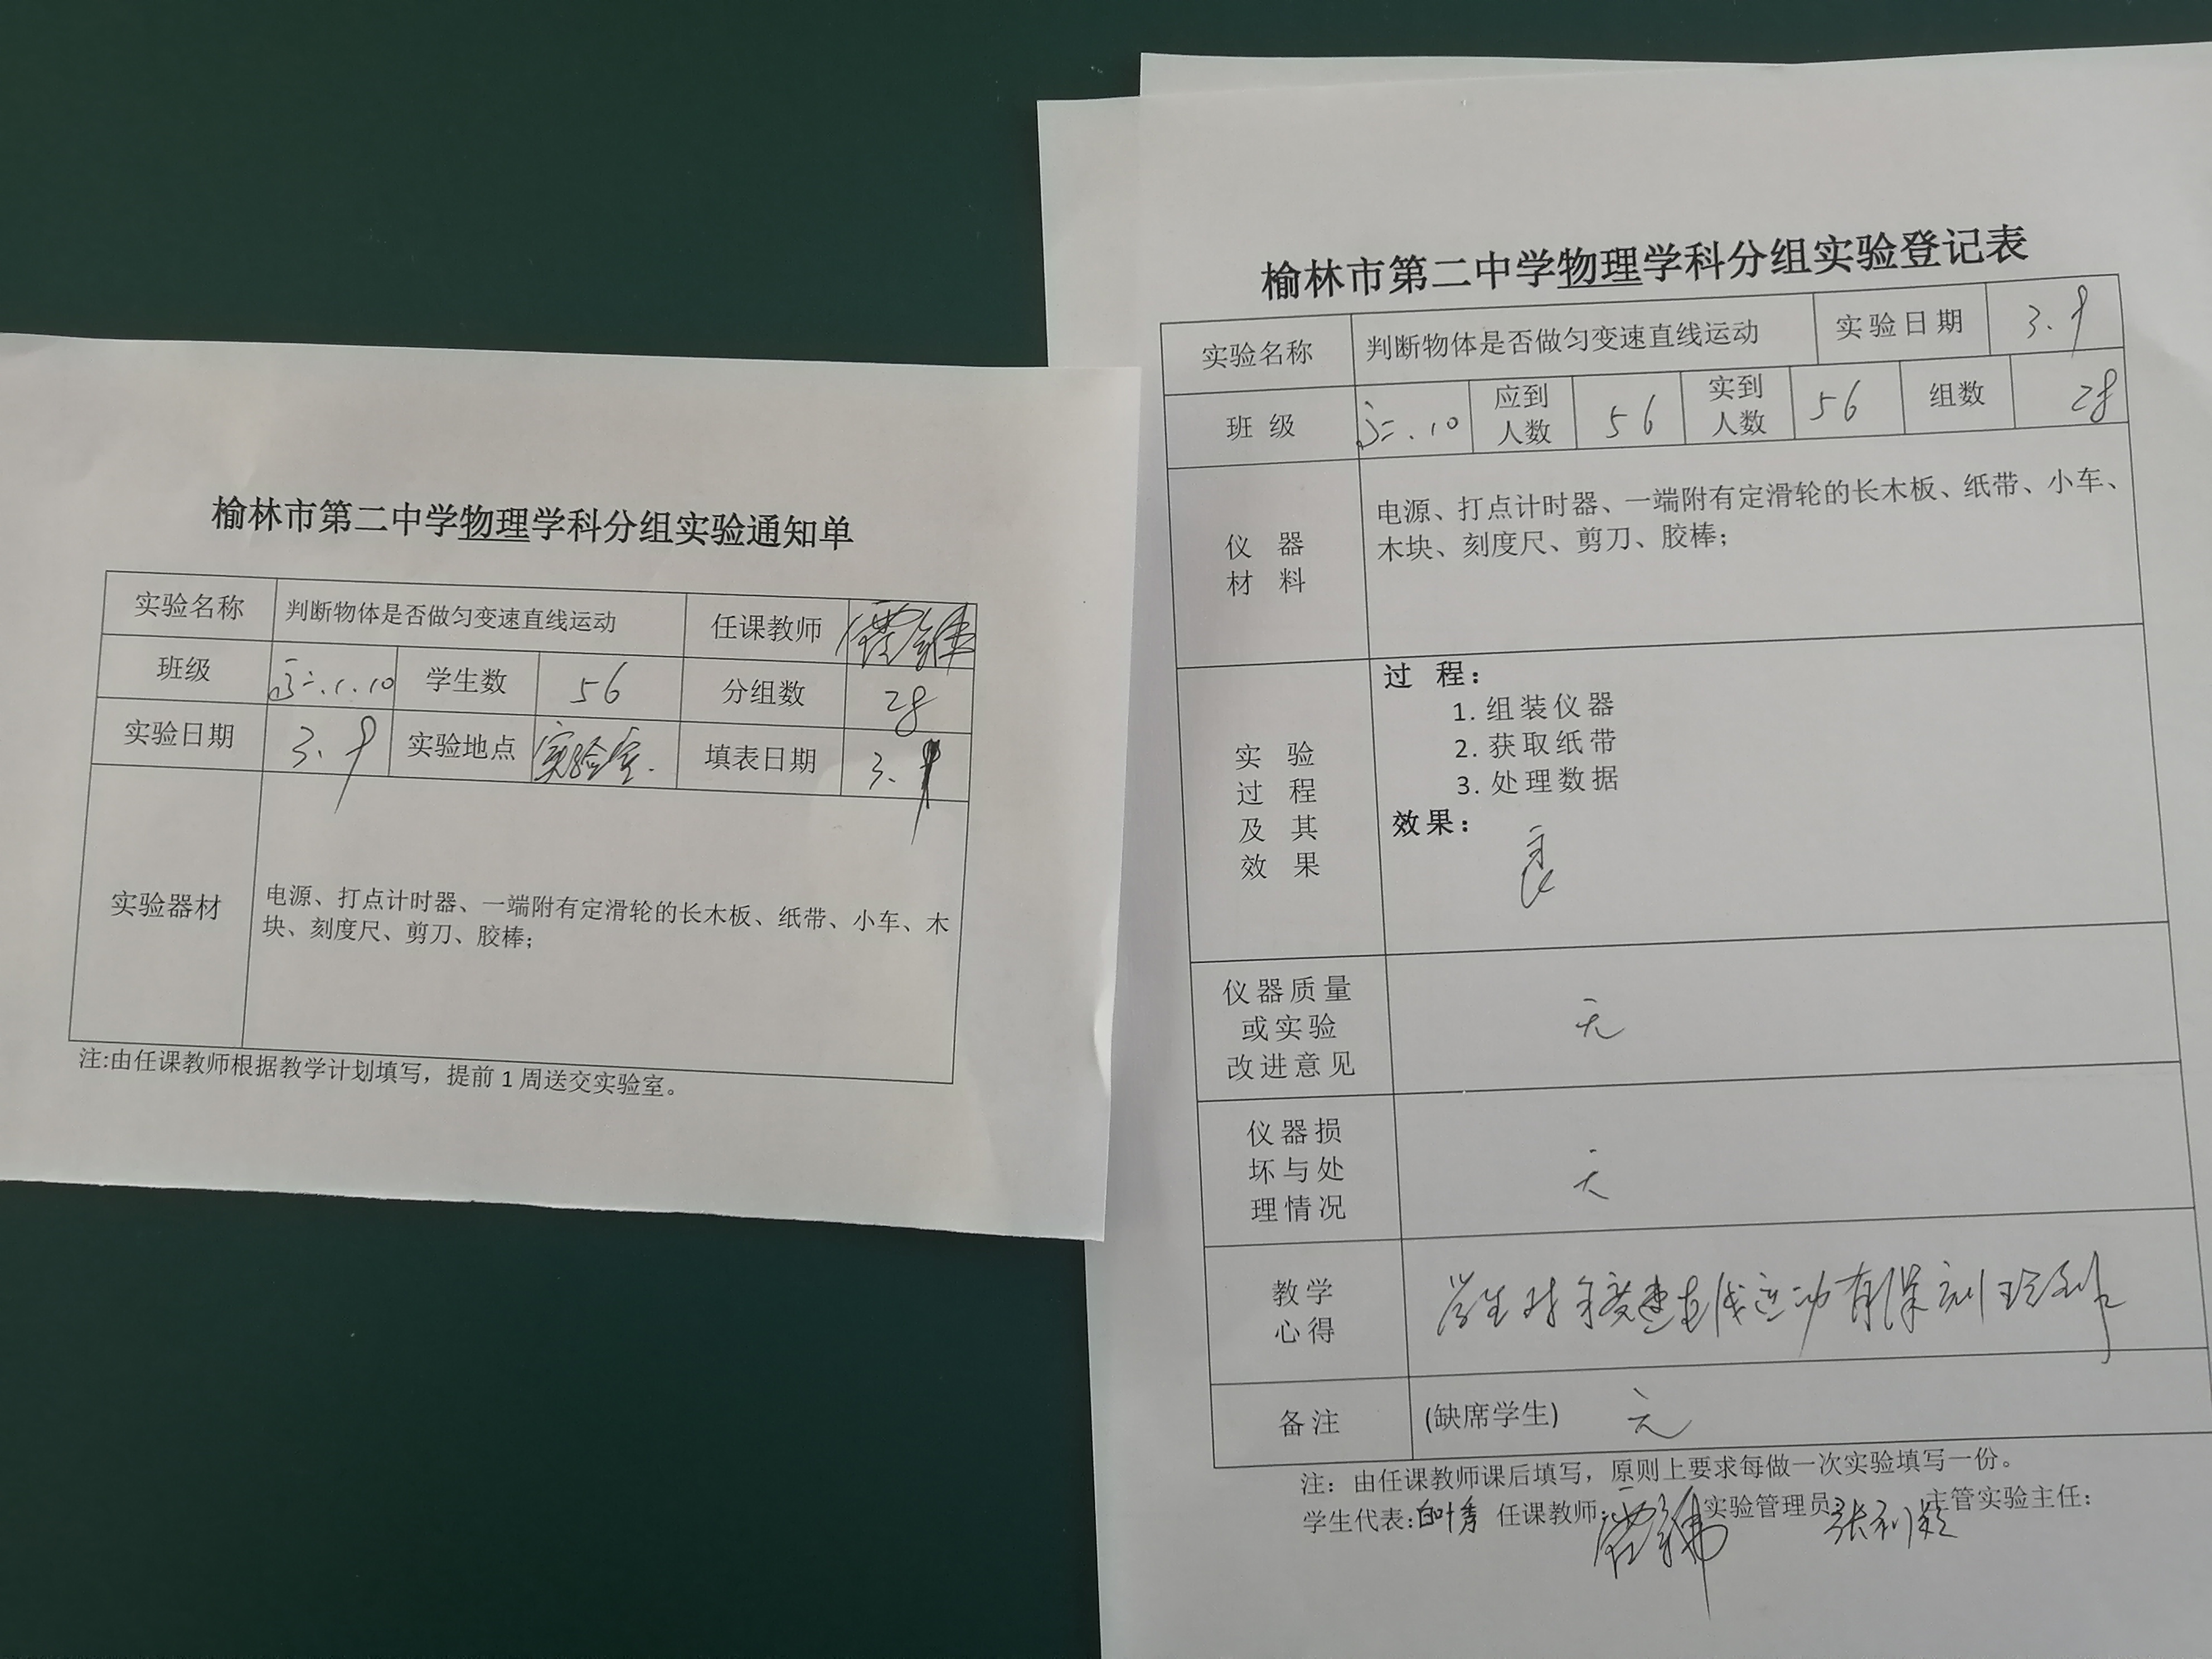 榆林市第二中学物理学科分组实验通知单
实验名称 判断物体是否做匀变速直线运动 任课教师
班级 高二.1.10 学生数 56 分组数 28
实验日期 3.9 实验地点 实验室. 填表日期 3.9
实验器材 电源、打点计时器、一端附有定滑轮的长木板、纸带、小车、木
块、刻度尺、剪刀、胶棒;
注:由任课教师根据教学计划填写，提前1周送交实验室。
榆林市第二中学物理学科分组实验登记表
实验名称 判断物体是否做匀变速直线运动 实验日期 3.9
班级 高二.10 应到人数 56 实到人数 56 组数 28
仪器材料 电源、打点计时器、一端附有定滑轮的长木板、纸带、小车、
木块、刻度尺、剪刀、胶棒;
实验过程及其效果
过 程:
1. 组装仪器
2. 获取纸带
3. 处理数据
效果: 良
仪器质量或实验改进意见 无
仪器损坏与处理情况 无
教学心得 学生对匀变速直线运动有深刻理解
备注 (缺席学生) 无
注: 由任课教师课后填写，原则上要求每做一次实验填写一份。
学生代表:白叶秀 任课教师: 实验管理员 张利 主管实验主任: